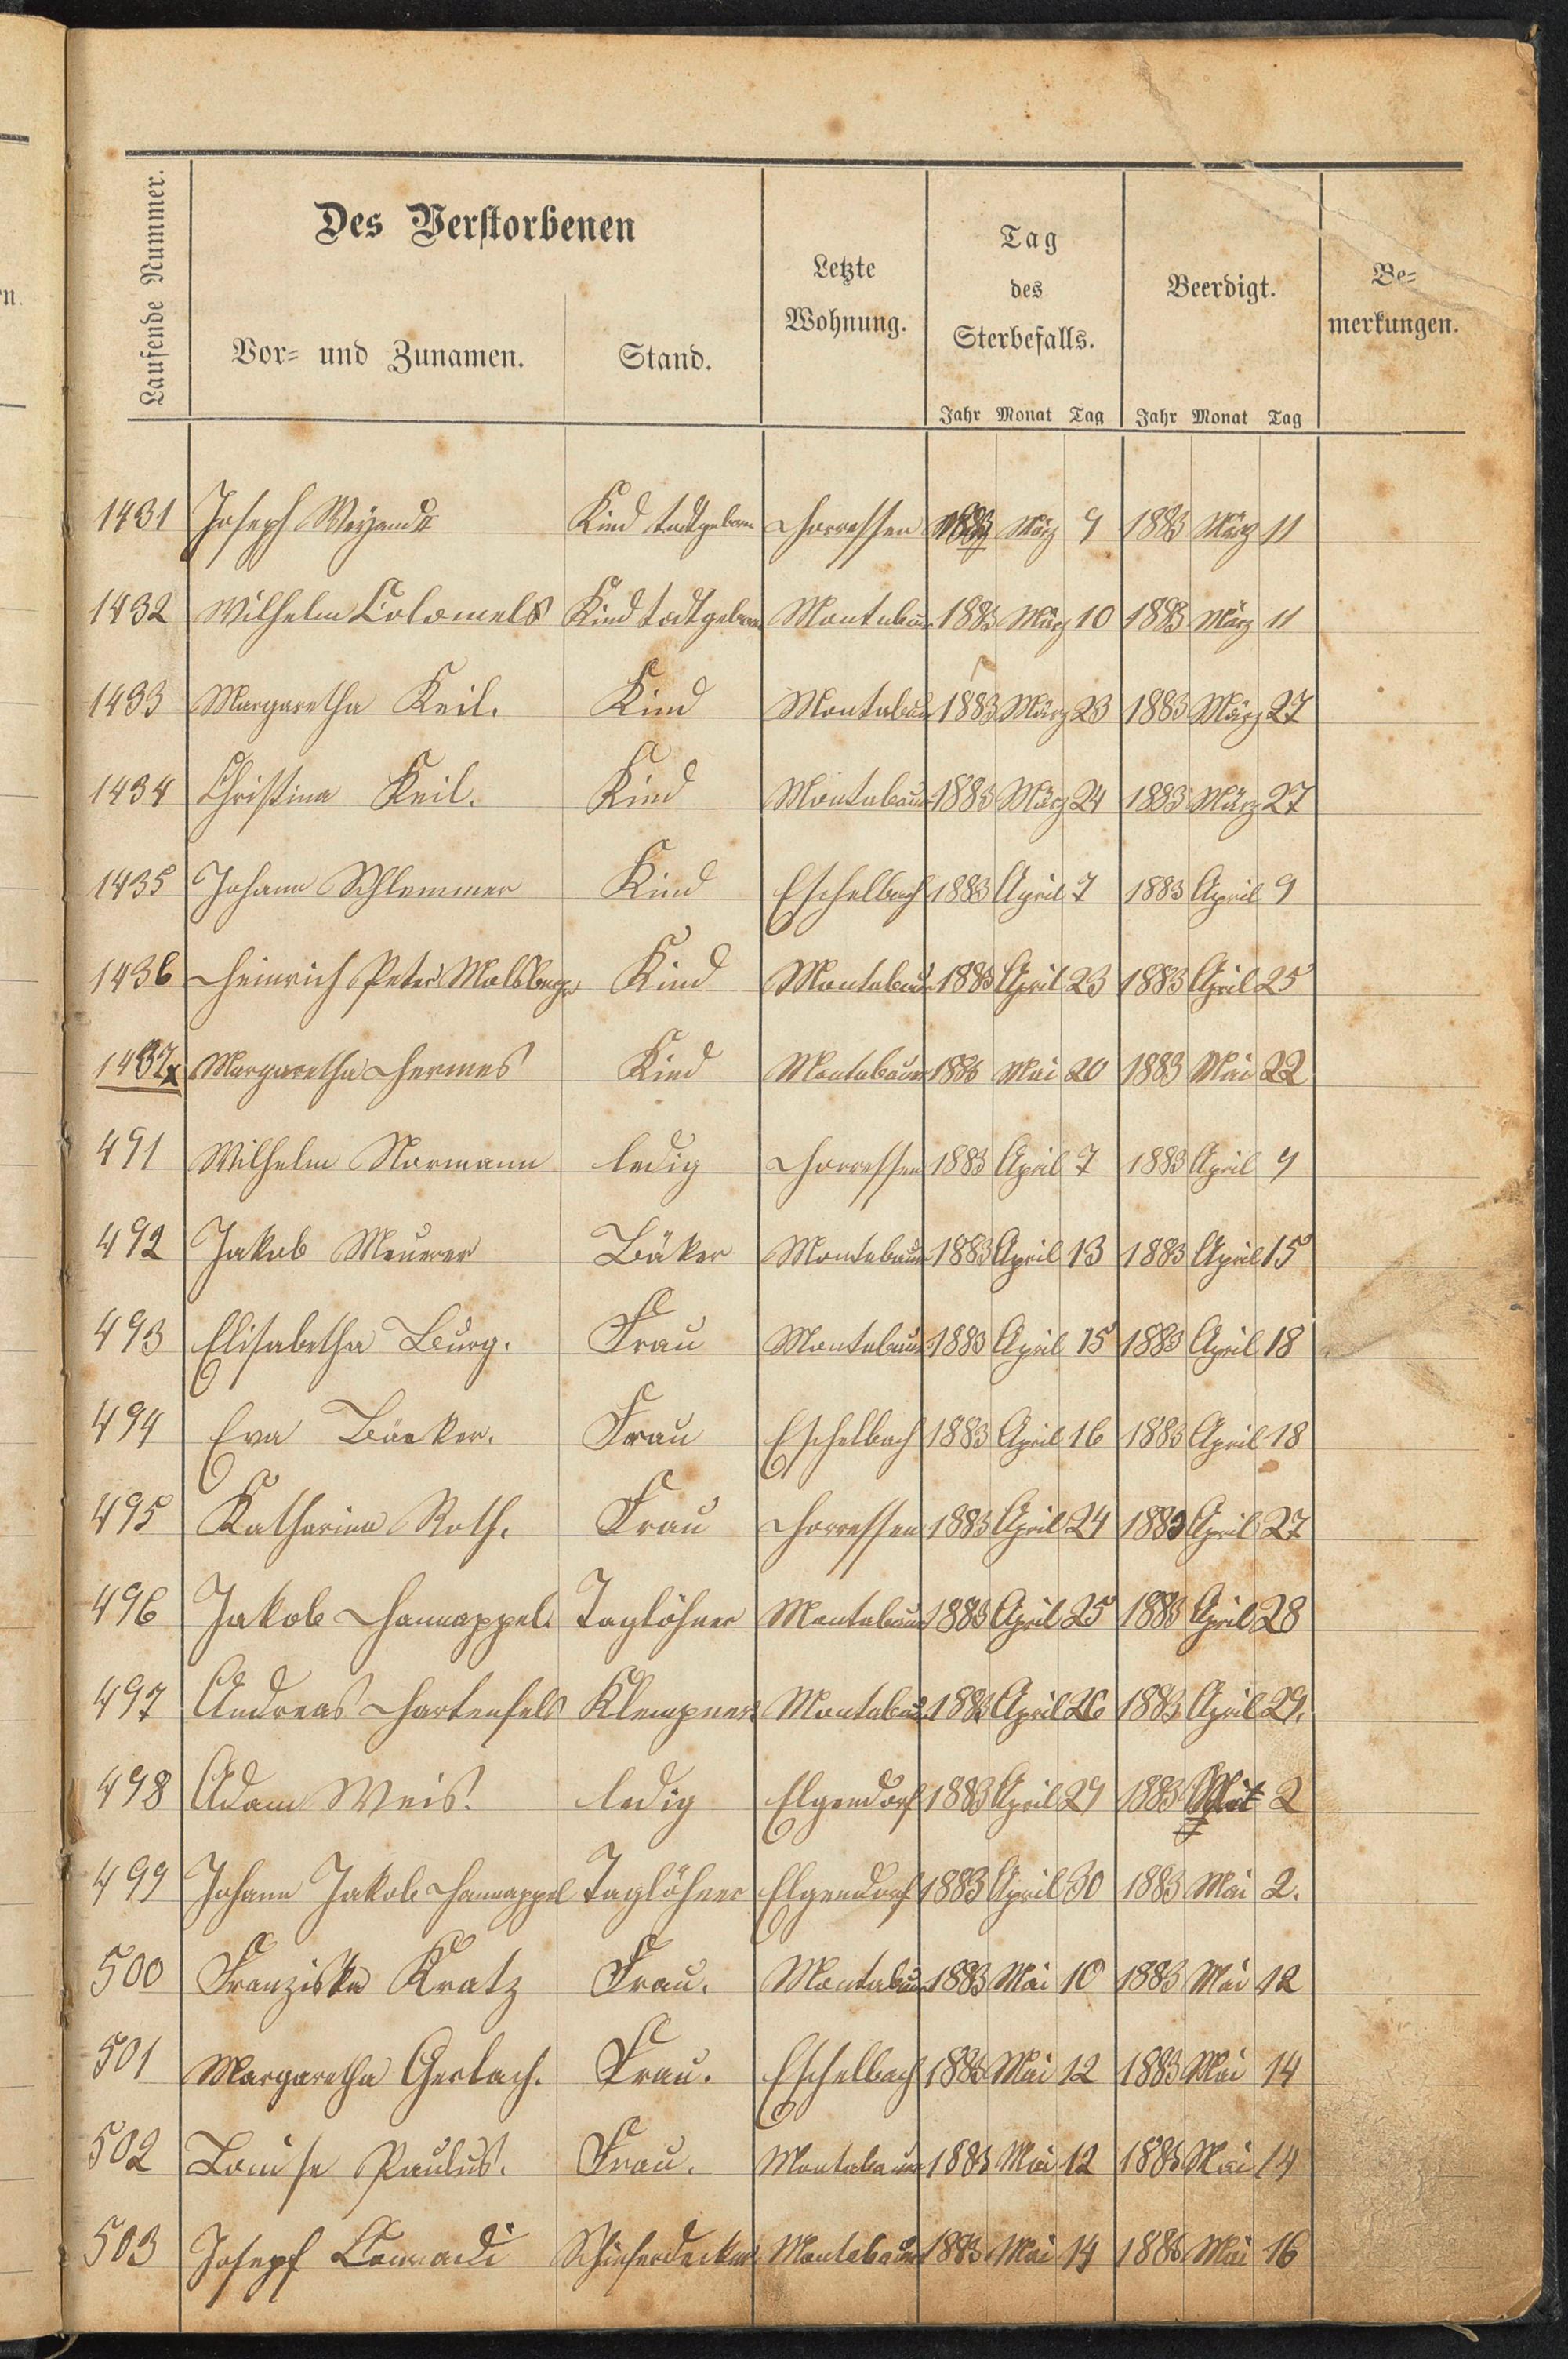 Laufende Nummer.
Des Verstorbenen
Vor- und Zunamen.
Stand.
Letzte
Wohnung.
Tag
des
Sterbefalls.
Beerdigt.
Be-
merkungen.
Jahr Monat Tag Jahr Monat Tag
1431 Joseph Weyand Kind todtgeboren Horressen 1883 März 9 1883 März 11
1432 Wilhelm Kind todtgeboren Montabaur 1883 März 10 1883 März 11
1433 Margaretha Keil. Kind Montabaur 1883 März 23 1883 März 27
1434 Christina Keil. Kind Montabaur 1883 März 24 1883 März 27
1435 Johann Schlemmer Kind Eschelbach 1883 April 7 1883 April 9
1436 Heinrich Peter Molsberger Kind Montabaur 1883 April 23 1883 April 25
1437x Margaretha Hermes Kind Montabaur 1883 Mai 20 1883 Mai 22
491 Wilhelm Normann ledig Horressen 1883 April 7 1883 April 9
492 Jakob Meurer Bäker Montabaur 1883 April 13 1883 April 15
493 Elisabetha Burg. Frau Montabaur 1883 April 15 1883 April 18
494 Eva Bäcker. Frau Eschelbach 1883 April 16 1883 April 18
495 Katharina Roth. Frau Horressen 1883 April 24 1883 April 27
496 Jakob Hannappel Taglöhner Montabaur 1883 April 25 1883 April 28
497 Andreas Hartenfels Klempner Montabaur 1883 April 26 1883 April 29.
498 Adam Weis. ledig Elgendorf 1883 April 29 1883 Mai 2
499 Johann Jakob Hannappel Taglöhner Elgendorf 1883 April 30 1883 Mai 2.
500 Franziska Kratz Frau. Montabaur 1883 Mai 10 1883 Mai 12
501 Margaretha Gerlach. Frau. Eschelbach 1883 Mai 12 1883 Mai 14
502 Louise Paulus. Frau. Montabaur 1883 Mai 12 1883 Mai 14
503 Josepf Conradi Schieferdecker Montabaur 1883 Mai 14 1883 Mai 16